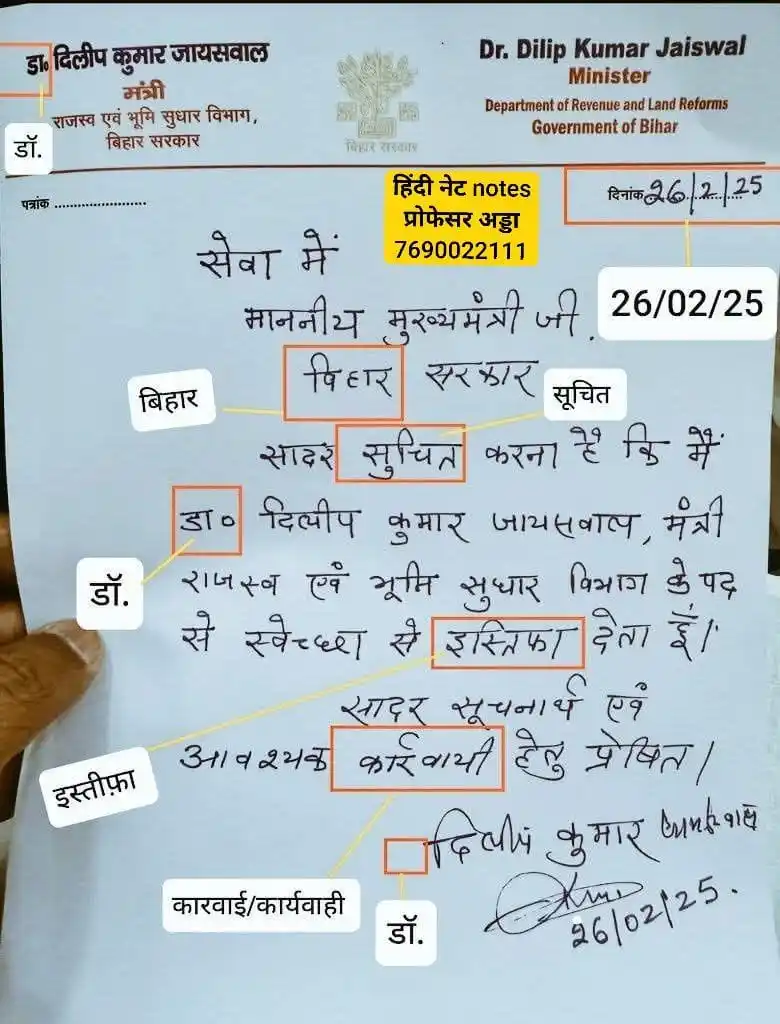 डा॰ दिलीप कुमार जायसवाल
मंत्री
राजस्व एवं भूमि सुधार विभाग,
बिहार सरकार
डॉ.
बिहार सरकार
Dr. Dilip Kumar Jaiswal
Minister
Department of Revenue and Land Reforms
Government of Bihar
पत्रांक .......................
हिंदी नेट notes
प्रोफेसर अड्डा
7690022111
दिनांक 26/2/25
26/02/25
सेवा में
माननीय मुख्यमंत्री जी.
बिहार सरकार
बिहार
सूचित
सादर सुचित करना है कि मैं
डा० दिलीप कुमार जायसवाल, मंत्री
डॉ.
राजस्व एवं भूमि सुधार विभाग के पद
से स्वेच्छा से इस्तिफा देता हूँ।
सादर सूचनार्थ एवं
आवश्यक कार्रवायी हेतु प्रेषित।
इस्तीफ़ा
दिलीप कुमार जायसवाल
कारवाई/कार्यवाही
डॉ.
26/02/25.